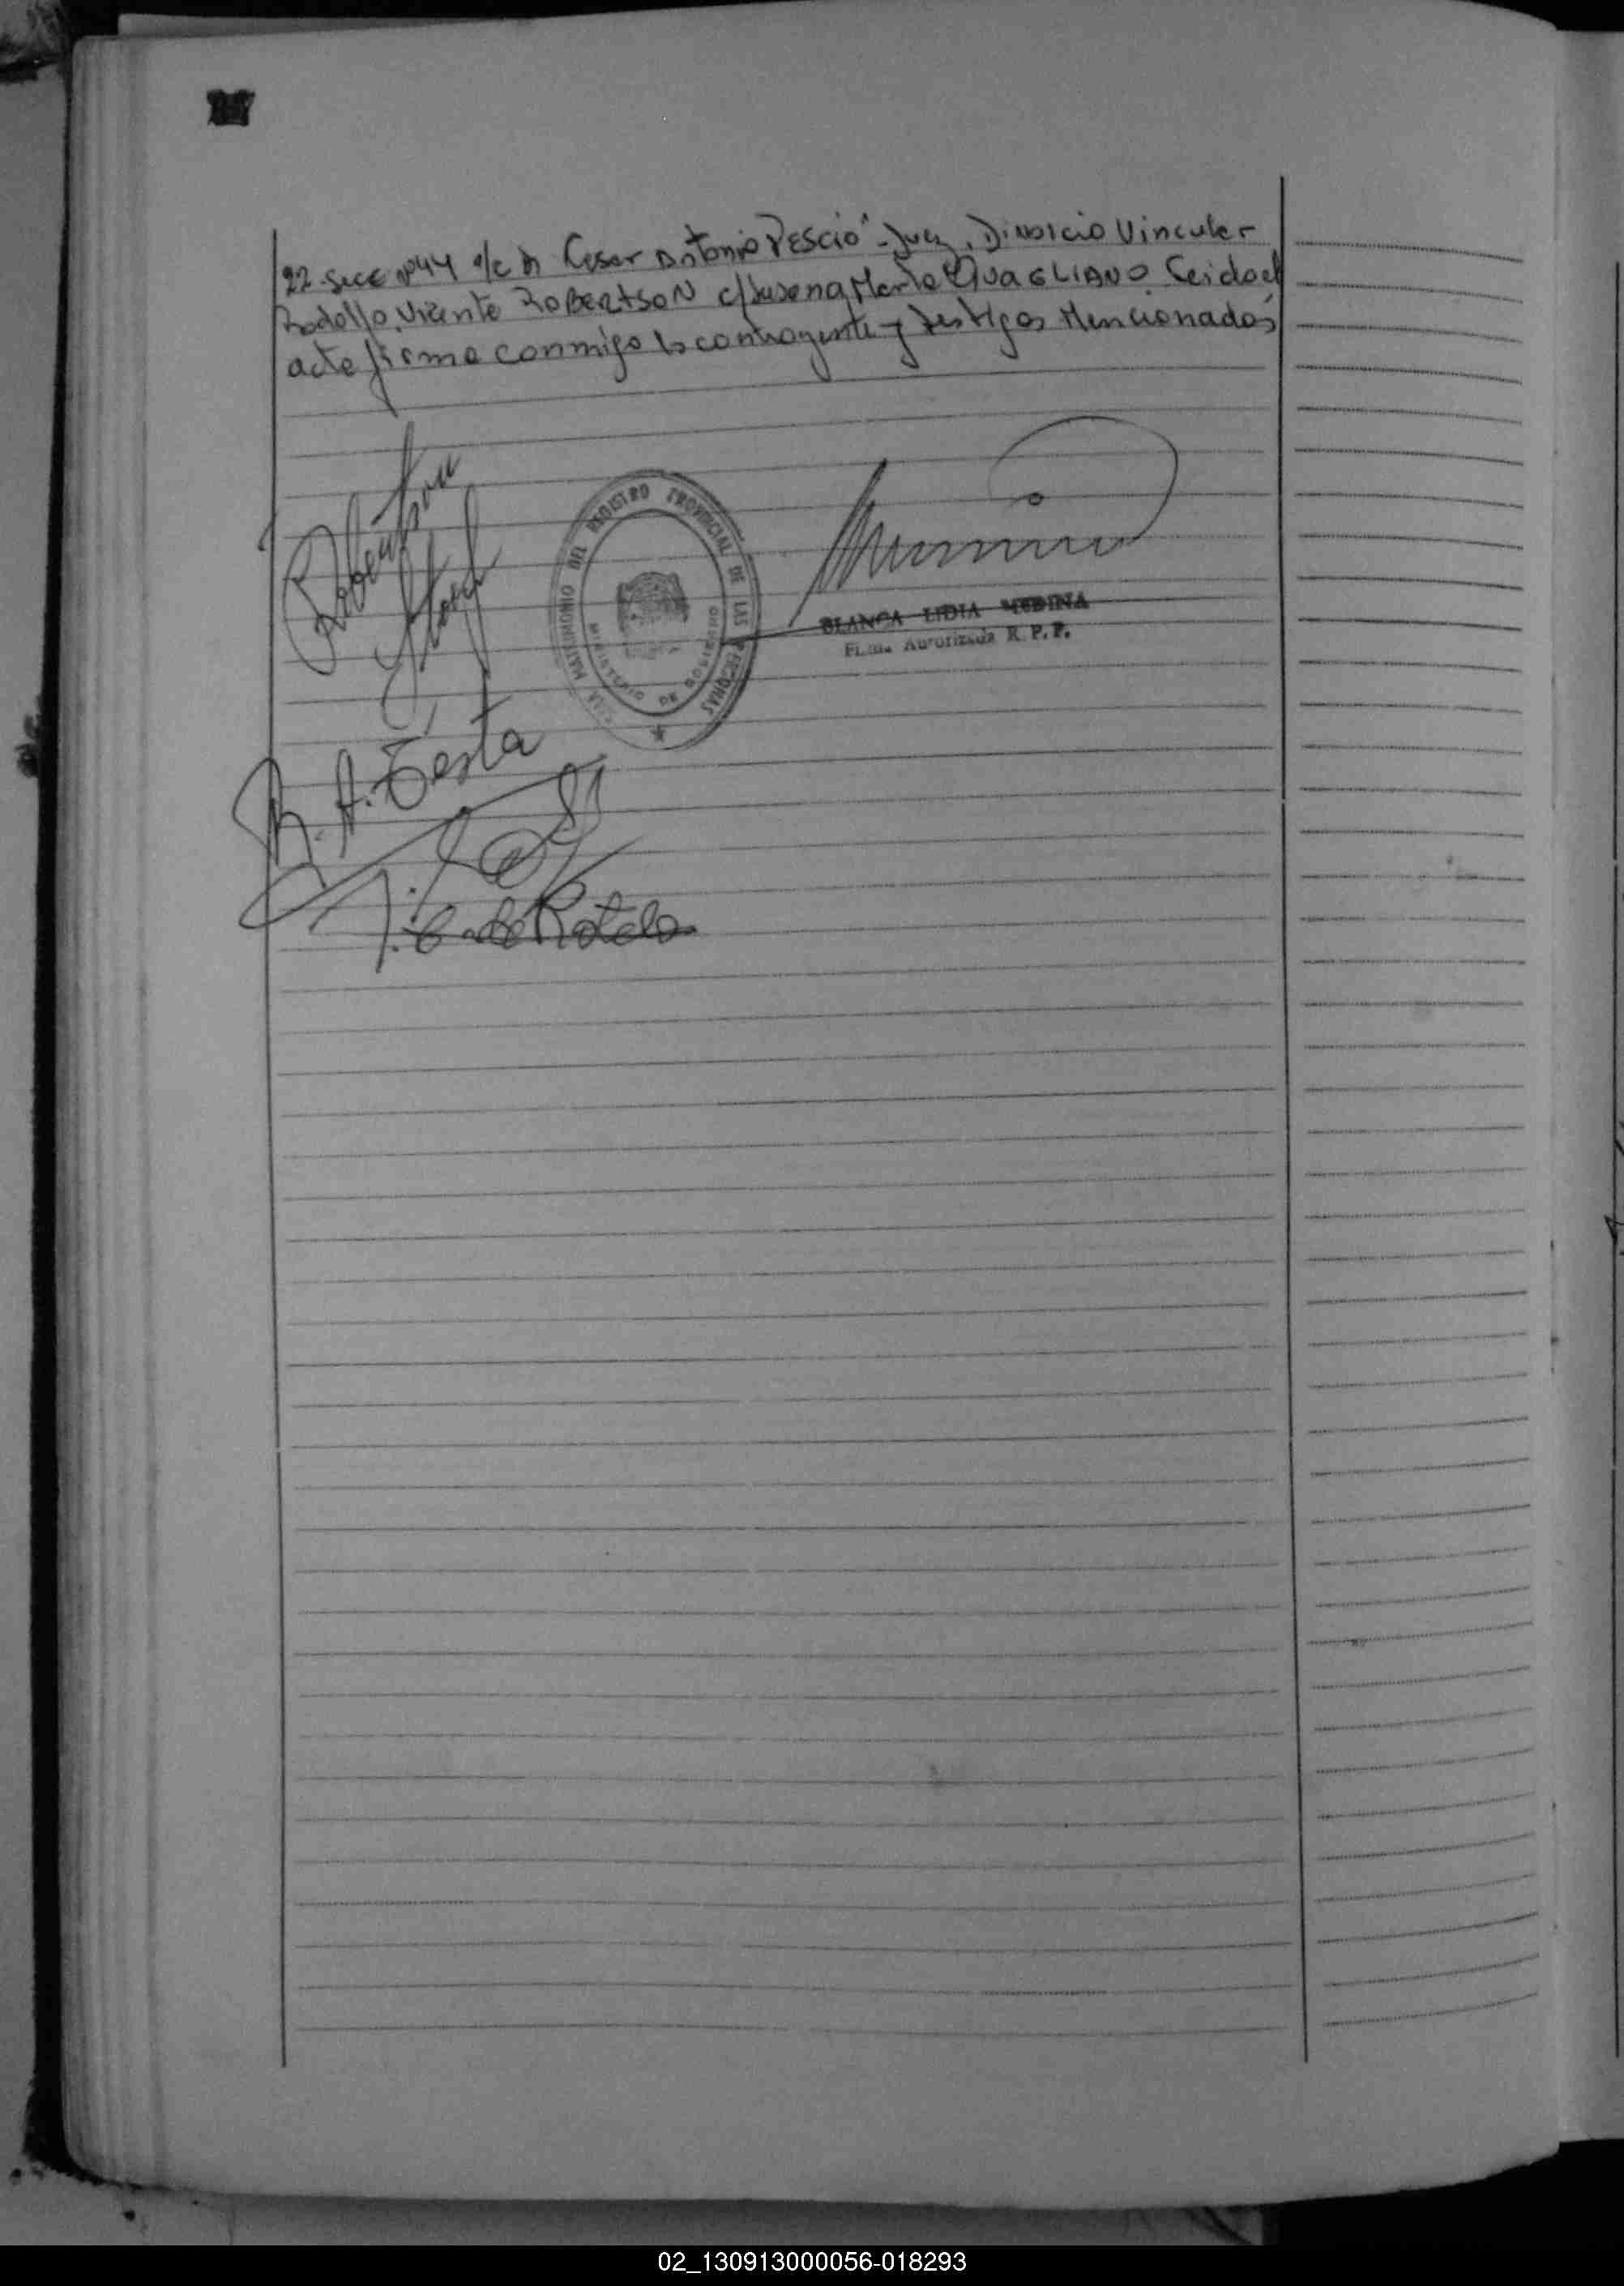 22 Sece Nº44 a/c Dr Cesar Antonio Pescio - Juez, Divorcio Vincular
Rodolfo Vicente ROBERTSON c/Susana Marta QUAGLIANO Leido el
acta firma conmigo los contrayente y testigos Mencionados
Robertson
REGISTRO PROVINCIAL DE LAS PERSONAS
MATRIMONIO DEL
MINISTERIO DE GOBIERNO
BLANCA LIDIA MEDINA
Firma Autorizada R.P.P.
R. A. Testa
de Rotelo
02_130913000056-018293